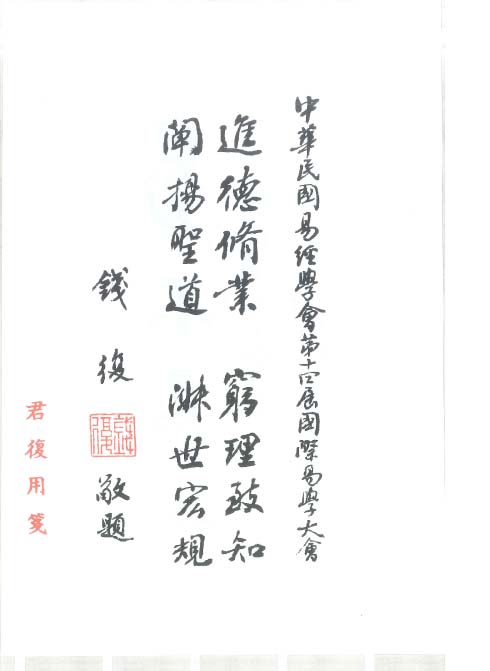 中華民國易經學會第十四屆國際易學大會
進德脩業 窮理致知
闡揚聖道 淑世宏規
錢復 敬題
錢復
君復用箋